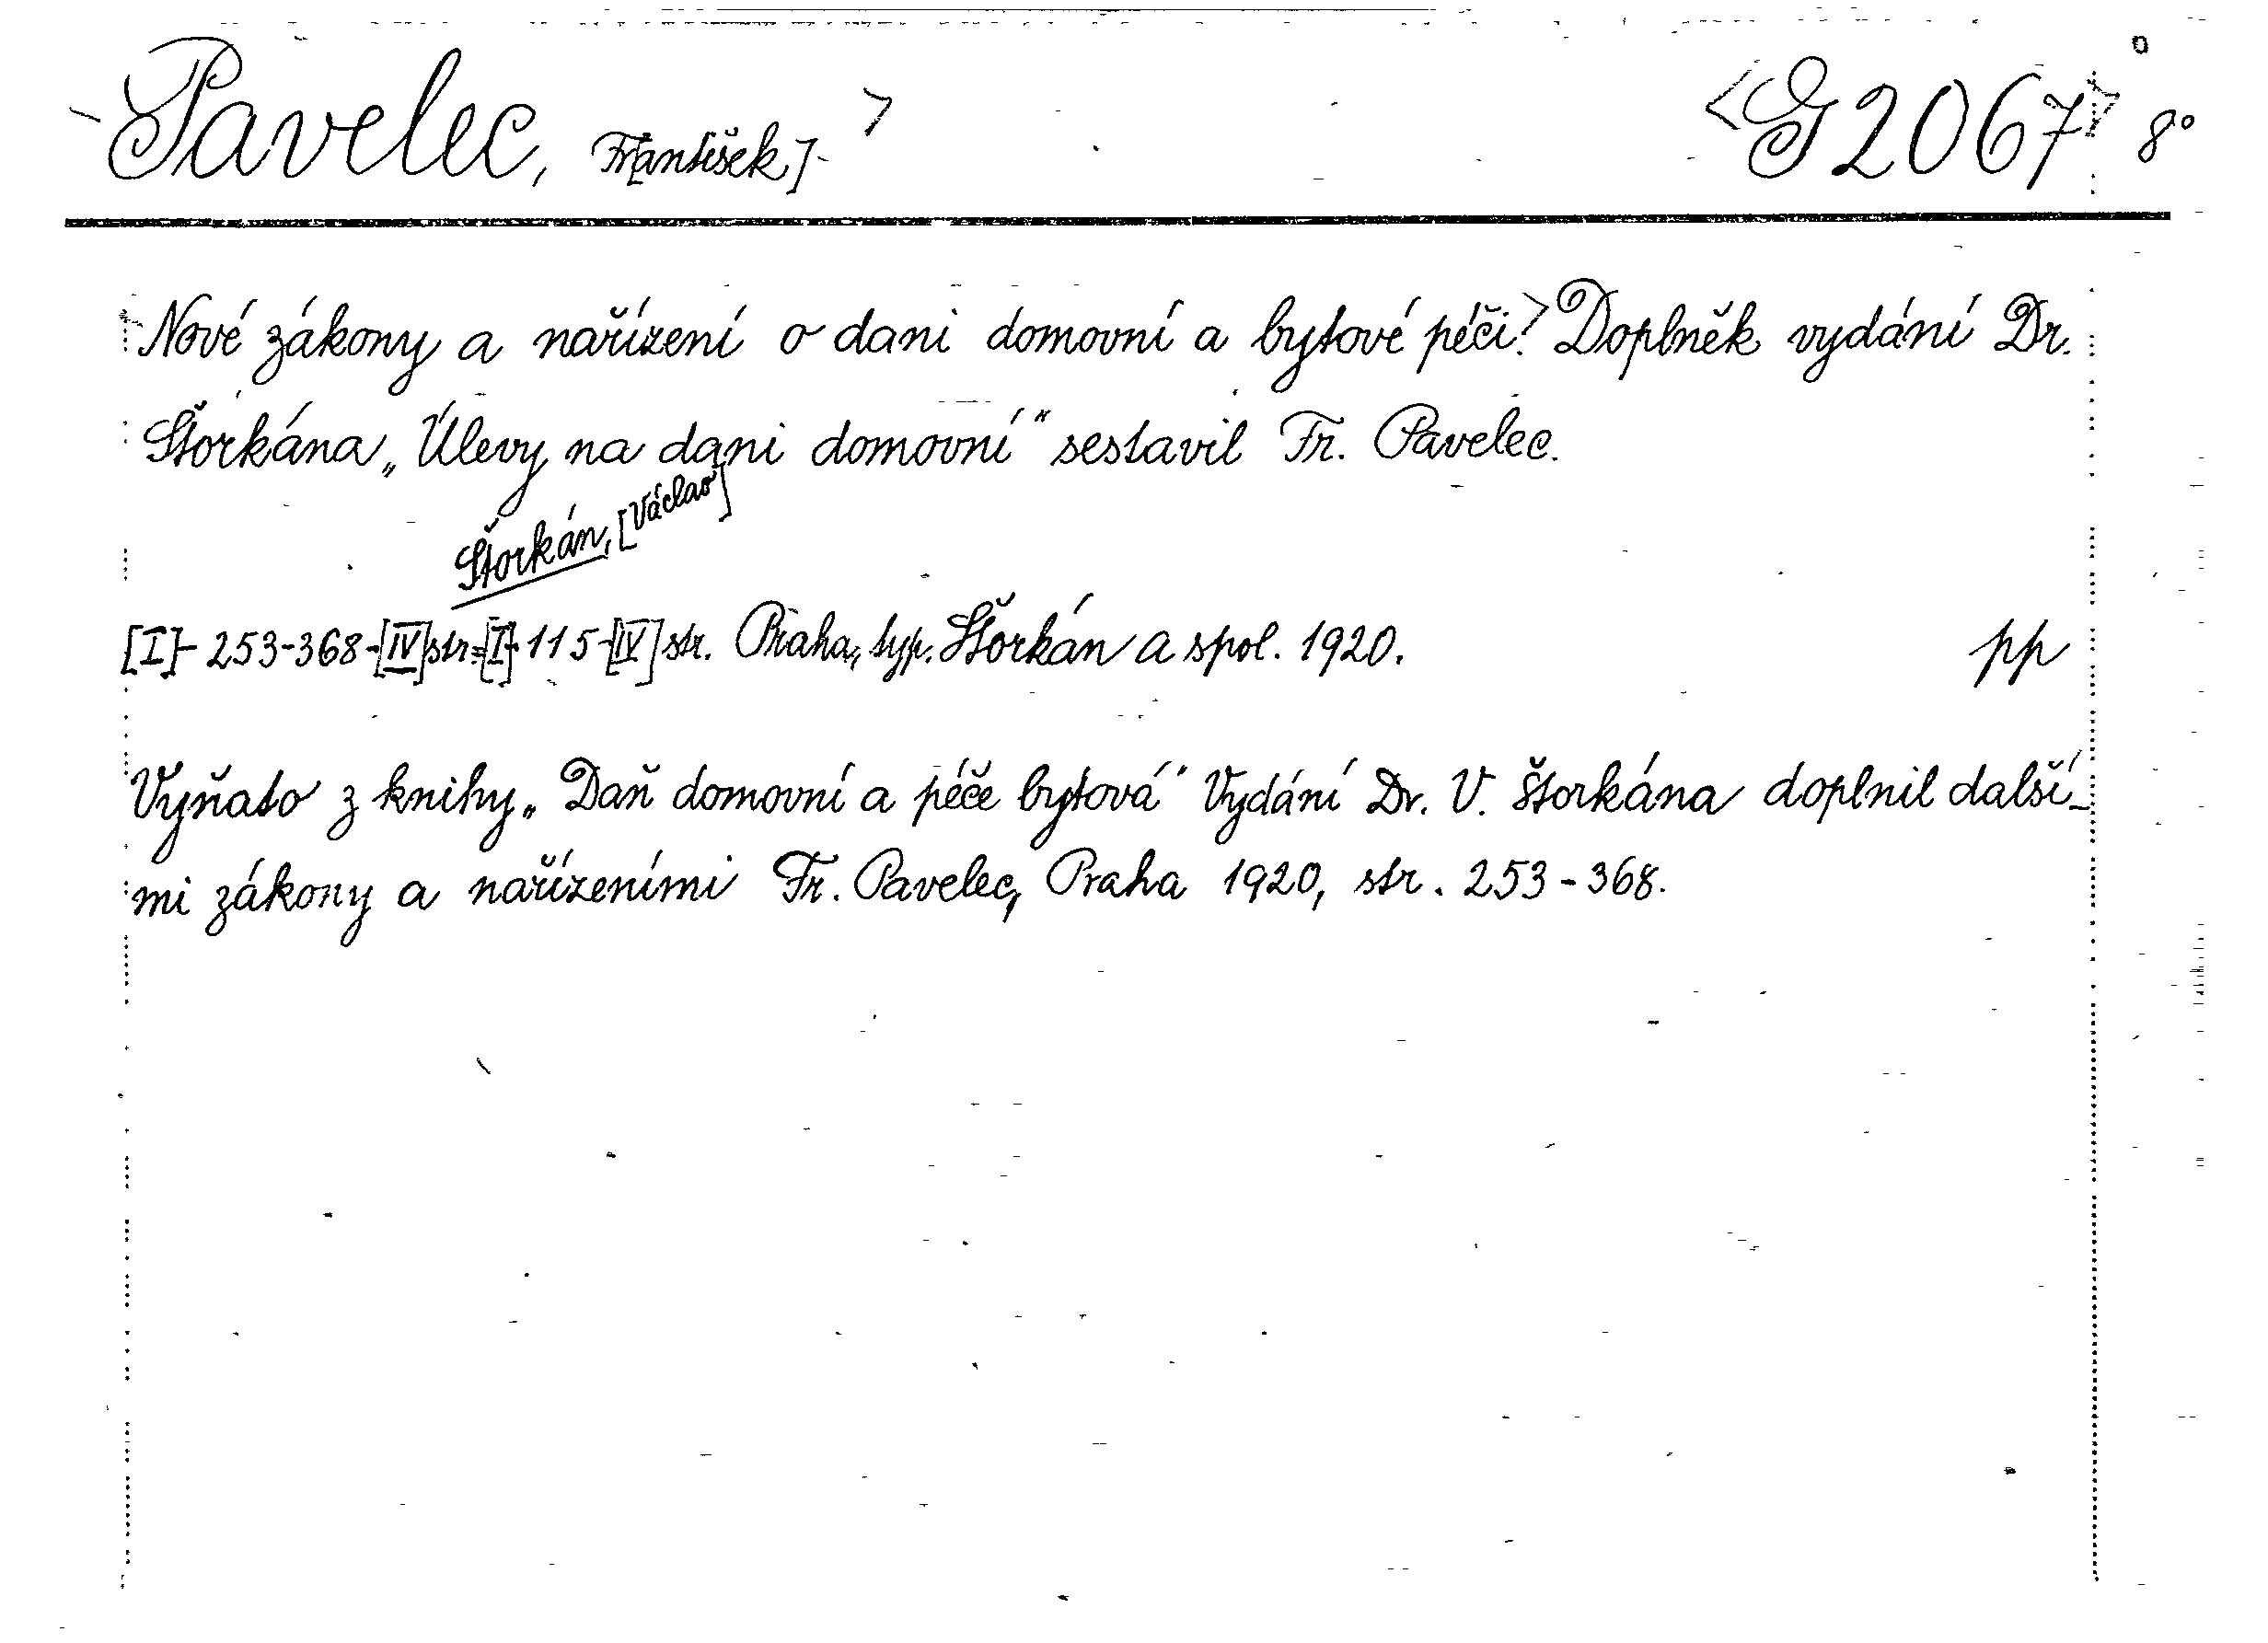 Pavelec, Fr[antišek]- > <G 2067> 8°
Nové zákony a nařízení o dani domovní a bytové péči.> Doplněk vydání Dr.
Štorkána „Úlevy na dani domovní“ sestavil Fr. Pavelec.
Štorkán, [Václav]
[I]-253-368-[IV]str.=[I]-115-[IV] str. Praha, typ. Štorkán a spol. 1920. pp
Vyňato z knihy „Daň domovní a péče bytová“ Vydání Dr. V. Štorkána doplnil další-
mi zákony a nařízeními Fr. Pavelec, Praha 1920, str. 253-368.